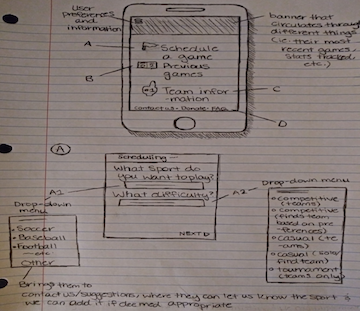 User
preferences
and
information
banner that
circulates through
different things
(i.e. their most
recent games,
stats tracked,
etc.)
A
Schedule
a game
B
Previous
games
Team infor-
mation
C
contact us - Donate - FAQ
D
A
Scheduling
What sport do
you want to play?
A1
What difficulty?
A2
NEXT
Drop-down
menu
Soccer
Baseball
Football
etc
Other
Drop-down
menu
competitive
(teams)
competitive
(finds team
based on pre-
ferences)
casual (te-
ams)
casual (solo/
find team)
tournament
(teams only)
Brings them to
contact us/suggestions, where they can let us know the sport &
we can add it if deemed appropriate